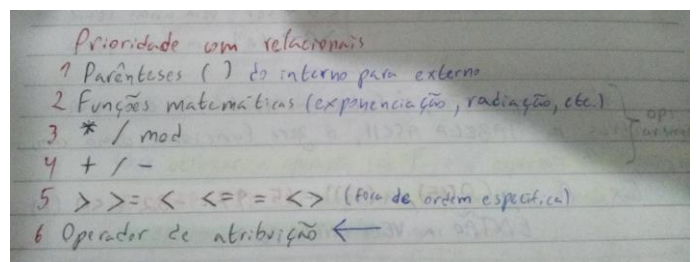 Prioridade com relacionais
1 Parênteses ( ) do interno para externo
2 Funções matemáticas (exponenciação, radiação, etc.)
3 * / mod
4 + / -
5 > >= < <= = <> (fora de ordem específica)
6 Operador de atribuição ←